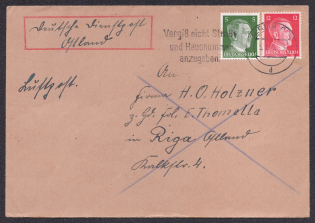 Deutsche Dienstpost
Ostland
Vergiß nicht Straße
und Hausnummer
anzugeben
5
12
DEUTSCHES REICH
DEUTSCHES REICH
d
Luftpost.
An
Firma H. O. Holzner
z. Hd. Frl. E. Thomella
in Riga Ostland
Kalkstr. 4.